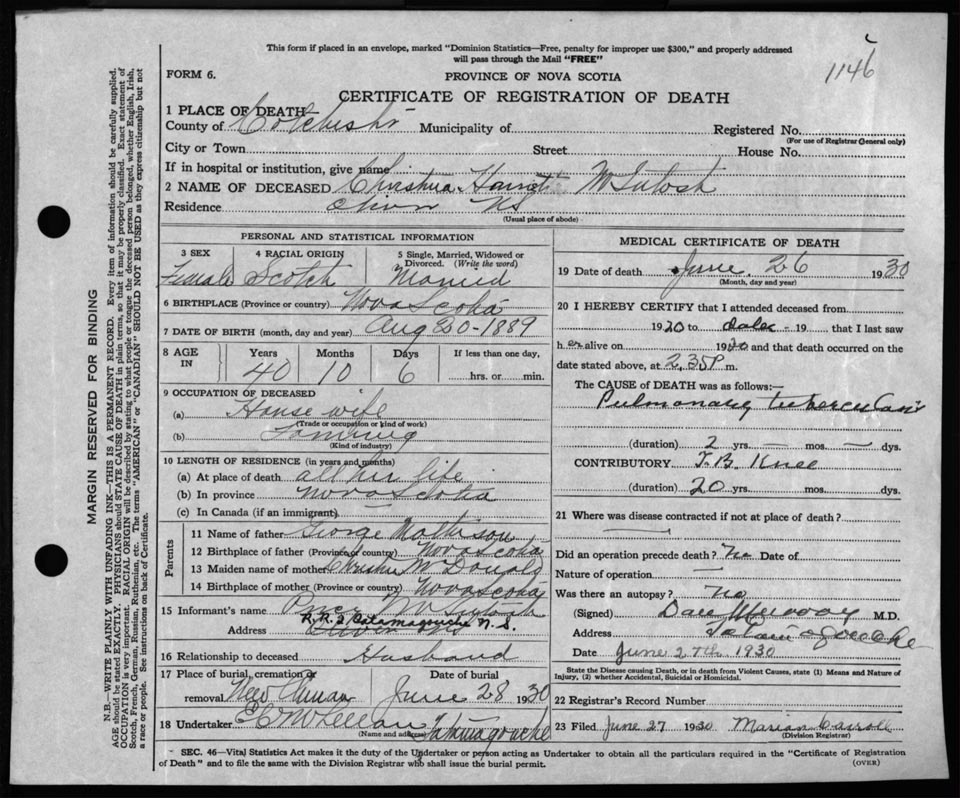 This form if placed in an envelope, marked "Dominion Statistics—Free, penalty for improper use $300," and properly addressed
will pass through the Mail "FREE"
1146
FORM 6.
PROVINCE OF NOVA SCOTIA
CERTIFICATE OF REGISTRATION OF DEATH
1 PLACE OF DEATH
County of Colchester Municipality of Registered No.
(For use of Registrar General only)
City or Town Street House No.
If in hospital or institution, give name
2 NAME OF DECEASED Christina Harriet McIntosh
Residence Oliver NS
(Usual place of abode)
PERSONAL AND STATISTICAL INFORMATION
3 SEX 4 RACIAL ORIGIN 5 Single, Married, Widowed or Divorced. (Write the word)
Female Scotch Married
6 BIRTHPLACE (Province or country) Nova Scotia
7 DATE OF BIRTH (month, day and year) Aug 20-1889
8 AGE IN Years Months Days If less than one day,
40 10 6 hrs. or min.
9 OCCUPATION OF DECEASED
(a) House wife
(Trade or occupation or kind of work)
(b) Farming
(Kind of industry)
10 LENGTH OF RESIDENCE (in years and months)
(a) At place of death all her life
(b) In province Nova Scotia
(c) In Canada (if an immigrant)
Parents
11 Name of father George Matheson
12 Birthplace of father (Province or country) Nova Scotia
13 Maiden name of mother Christie McDonald
14 Birthplace of mother (Province or country) Nova Scotia
15 Informant's name McIntosh
R.R.2 Tatamagouche N.S.
Address Oliver NS
16 Relationship to deceased Husband
17 Place of burial, cremation or removal Date of burial
New Annan June 28 1930
18 Undertaker McLellan Tatamagouche
(Name and address)
MEDICAL CERTIFICATE OF DEATH
19 Date of death June 26 1930
(Month, day and year)
20 I HEREBY CERTIFY that I attended deceased from
1920 to date - 19 that I last saw
her alive on 1930 and that death occurred on the
date stated above, at 2.35P m.
The CAUSE of DEATH was as follows:—
Pulmonary tuberculosis
(duration) 2 yrs. — mos. — dys.
CONTRIBUTORY T.B. Knee
(duration) 20 yrs. mos. dys.
21 Where was disease contracted if not at place of death?
Did an operation precede death? No Date of
Nature of operation —
Was there an autopsy? No
(Signed) Dan Murray M.D.
Address Tatamagouche
Date June 27th 1930
State the Disease causing Death, or in death from Violent Causes, state (1) Means and Nature of
Injury, (2) whether Accidental, Suicidal or Homicidal.
22 Registrar's Record Number
23 Filed June 27 1930 Marion Carroll
(Division Registrar)
SEC. 46—Vital Statistics Act makes it the duty of the Undertaker or person acting as Undertaker to obtain all the particulars required in the "Certificate of Registration
of Death" and to file the same with the Division Registrar who shall issue the burial permit.
(OVER)
MARGIN RESERVED FOR BINDING
N.B.—WRITE PLAINLY WITH UNFADING INK—THIS IS A PERMANENT RECORD. Every item of information should be carefully supplied.
AGE should be stated EXACTLY. PHYSICIANS should STATE CAUSE OF DEATH in plain terms, so that it may be properly classified. Exact statement of
OCCUPATION is very important. RACIAL ORIGIN will be described by stating to what people or tongue the deceased person belonged, whether English, Irish,
Scotch, French, German, Russian, Ruthenian, etc. The terms "AMERICAN" or "CANADIAN" SHOULD NOT BE USED as they express citizenship but not
a race or people. See instructions on back of Certificate.